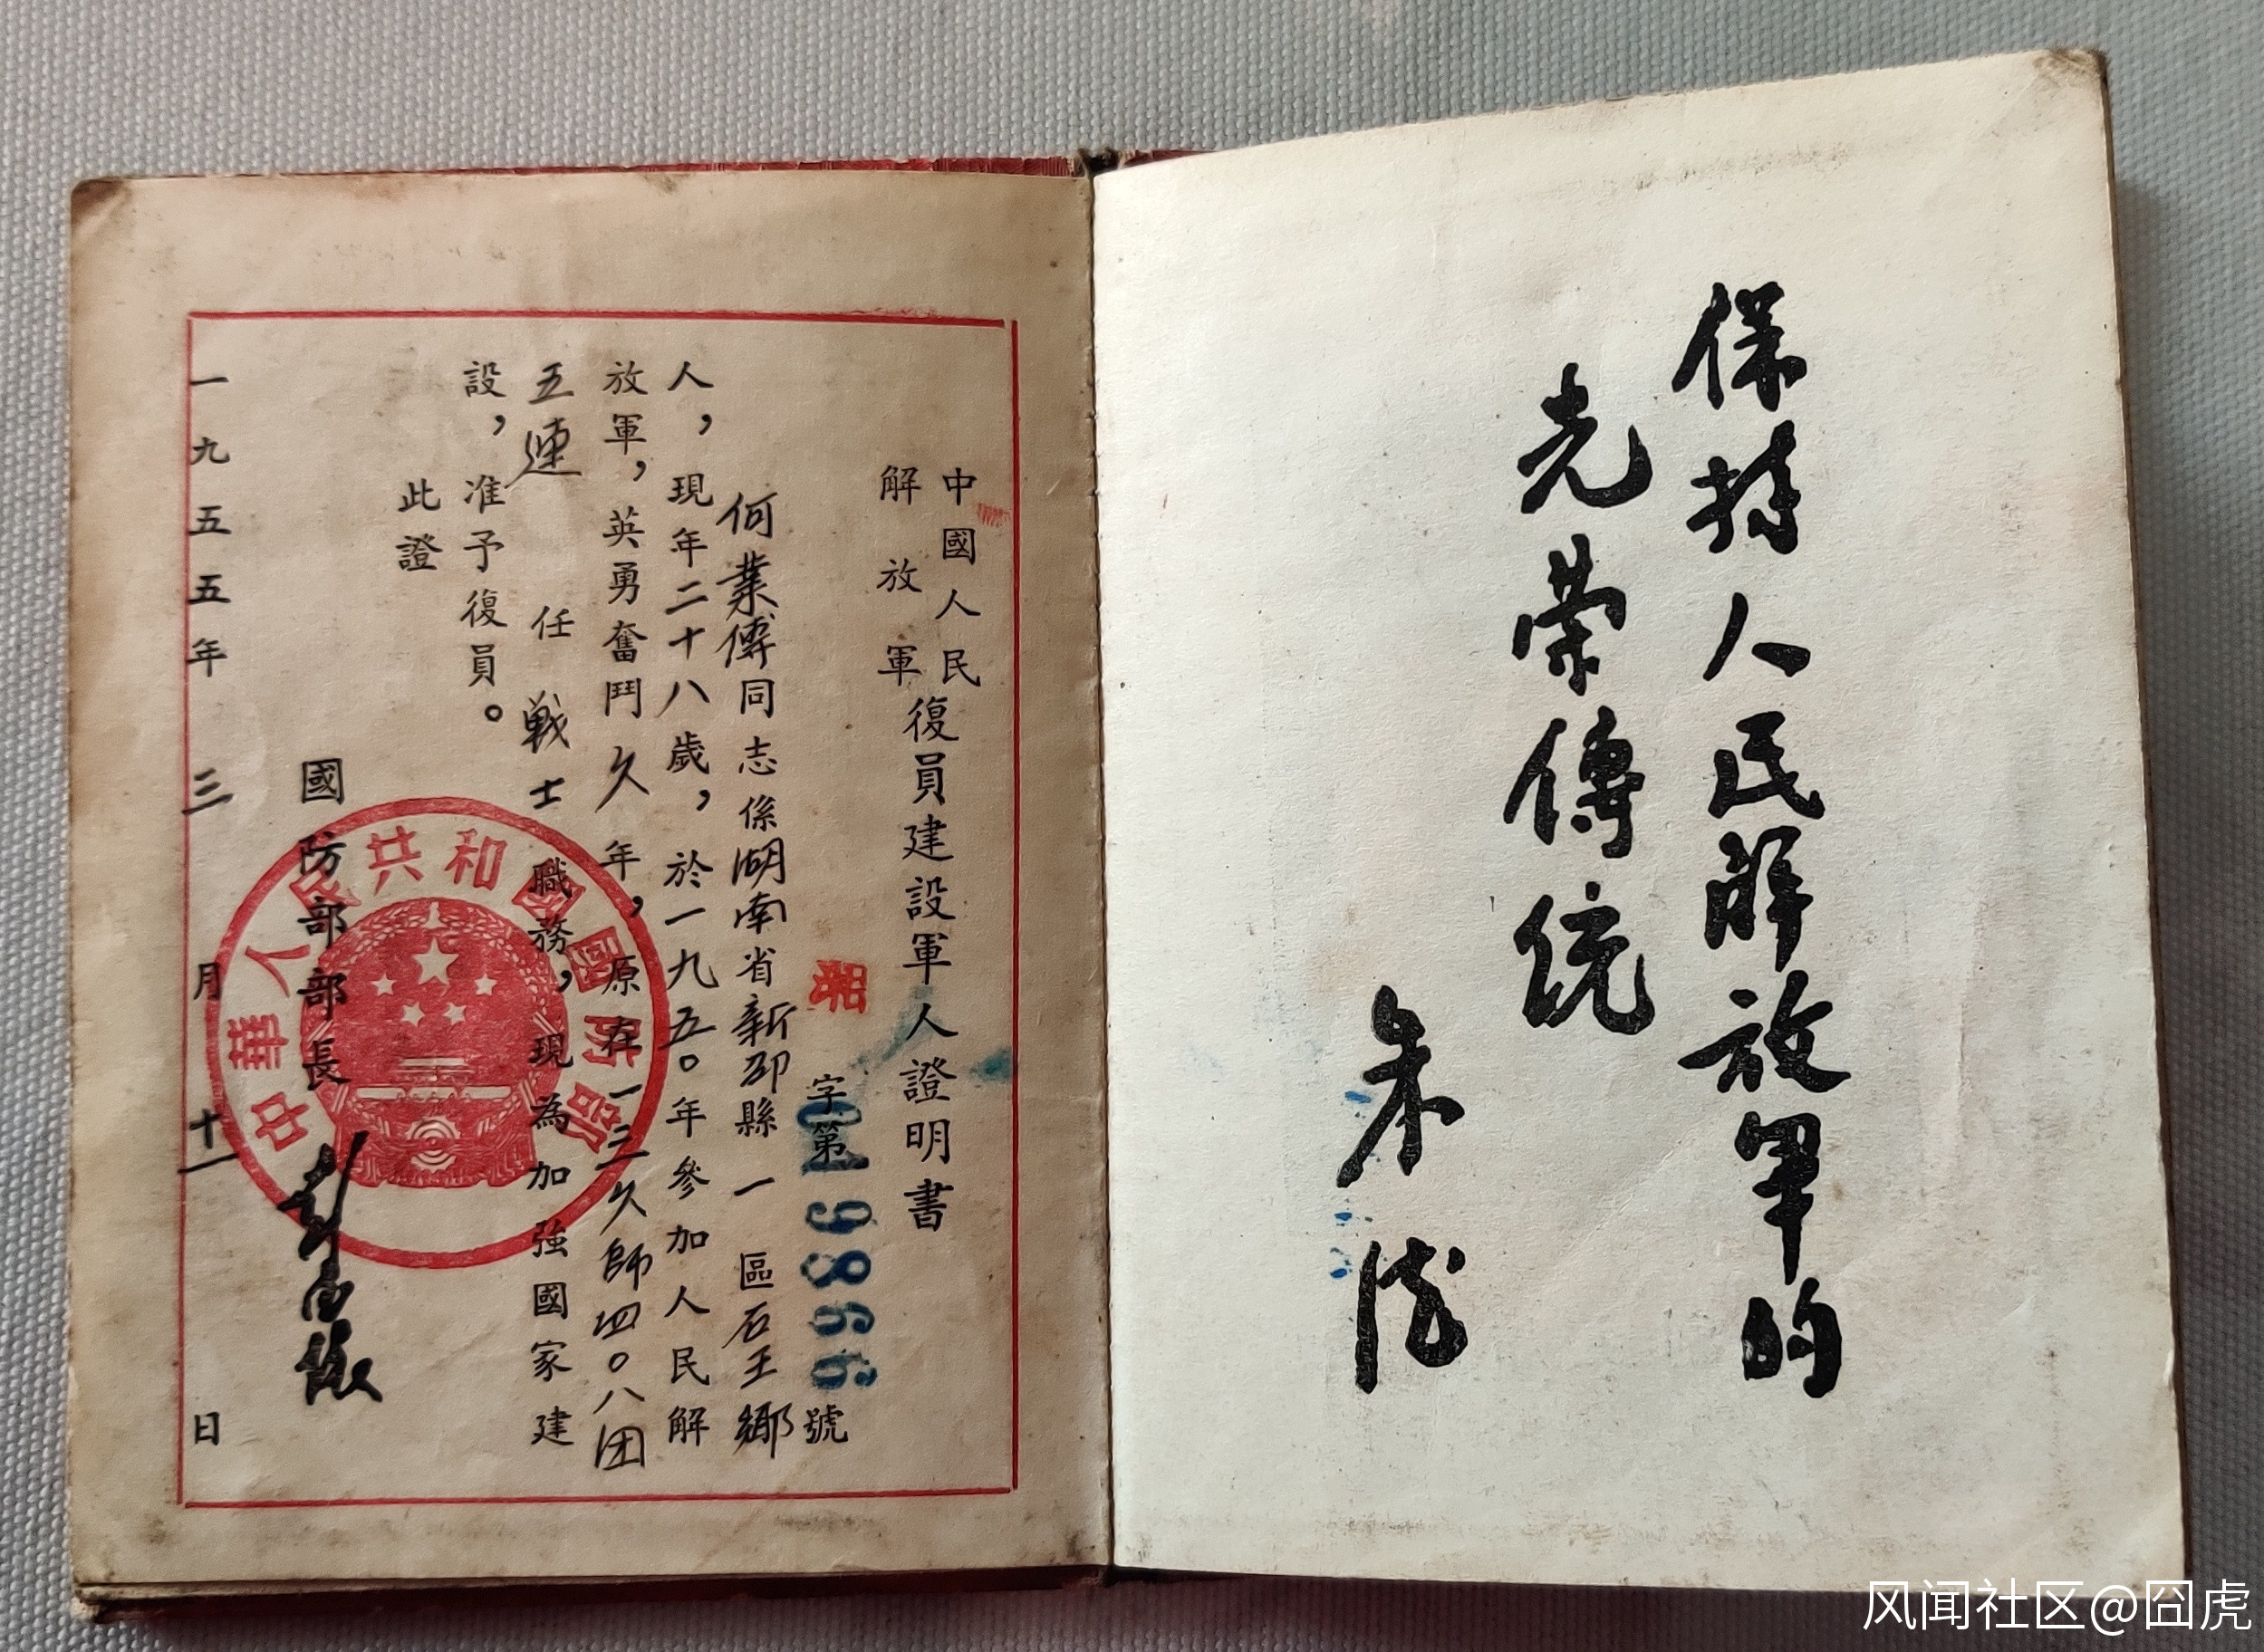 保持人民解放軍的
光荣傳統
朱德
中國人民
解放軍
復員建設軍人證明書
湘字第019866號
何業傅同志係湖南省新邵縣一區石王鄉
人，現年二十八歲，於一九五〇年參加人民解
放軍，英勇奮鬥久年，原在一三久師四〇八团
五連任戰士職務，現為加強國家建
設，准予復員。
此證
國防部部長 彭德懷
一九五五年三月十一日
中華人民共和國國防部
风闻社区@囧虎